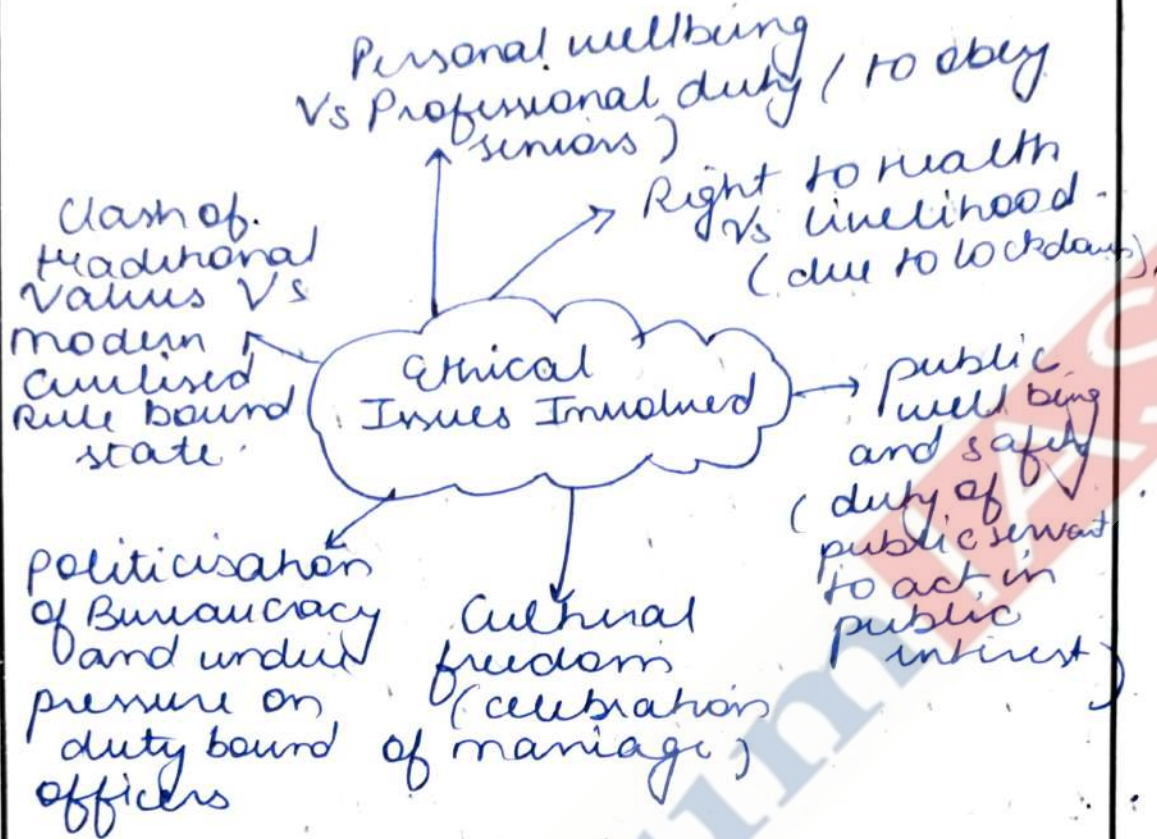 Personal wellbeing
Vs Professional duty (to obey
seniors)
Right to Health
Vs livelihood.
(due to lockdown).
Clash of
traditional
Values Vs
modern
Civilised
Rule bound
state.
Ethical
Issues Involved
public
well being
and safety
(duty of
public servant
to act in
public
interest)
Politicisation
of Bureaucracy
and undue
pressure on
duty bound
officers
Cultural
freedom
(celebration
of marriage)
IAS